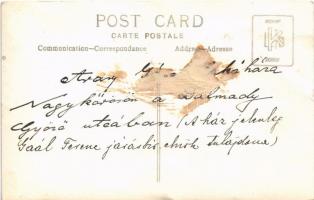 POST CARD
CARTE POSTALE
Communication—Correspondance Address—Adresse
Arany háhára
Nagykőrösön a Dalmady
Győző utcában (A ház jelenleg
Gaál Ferenc járásbir. elnök tulajdona)